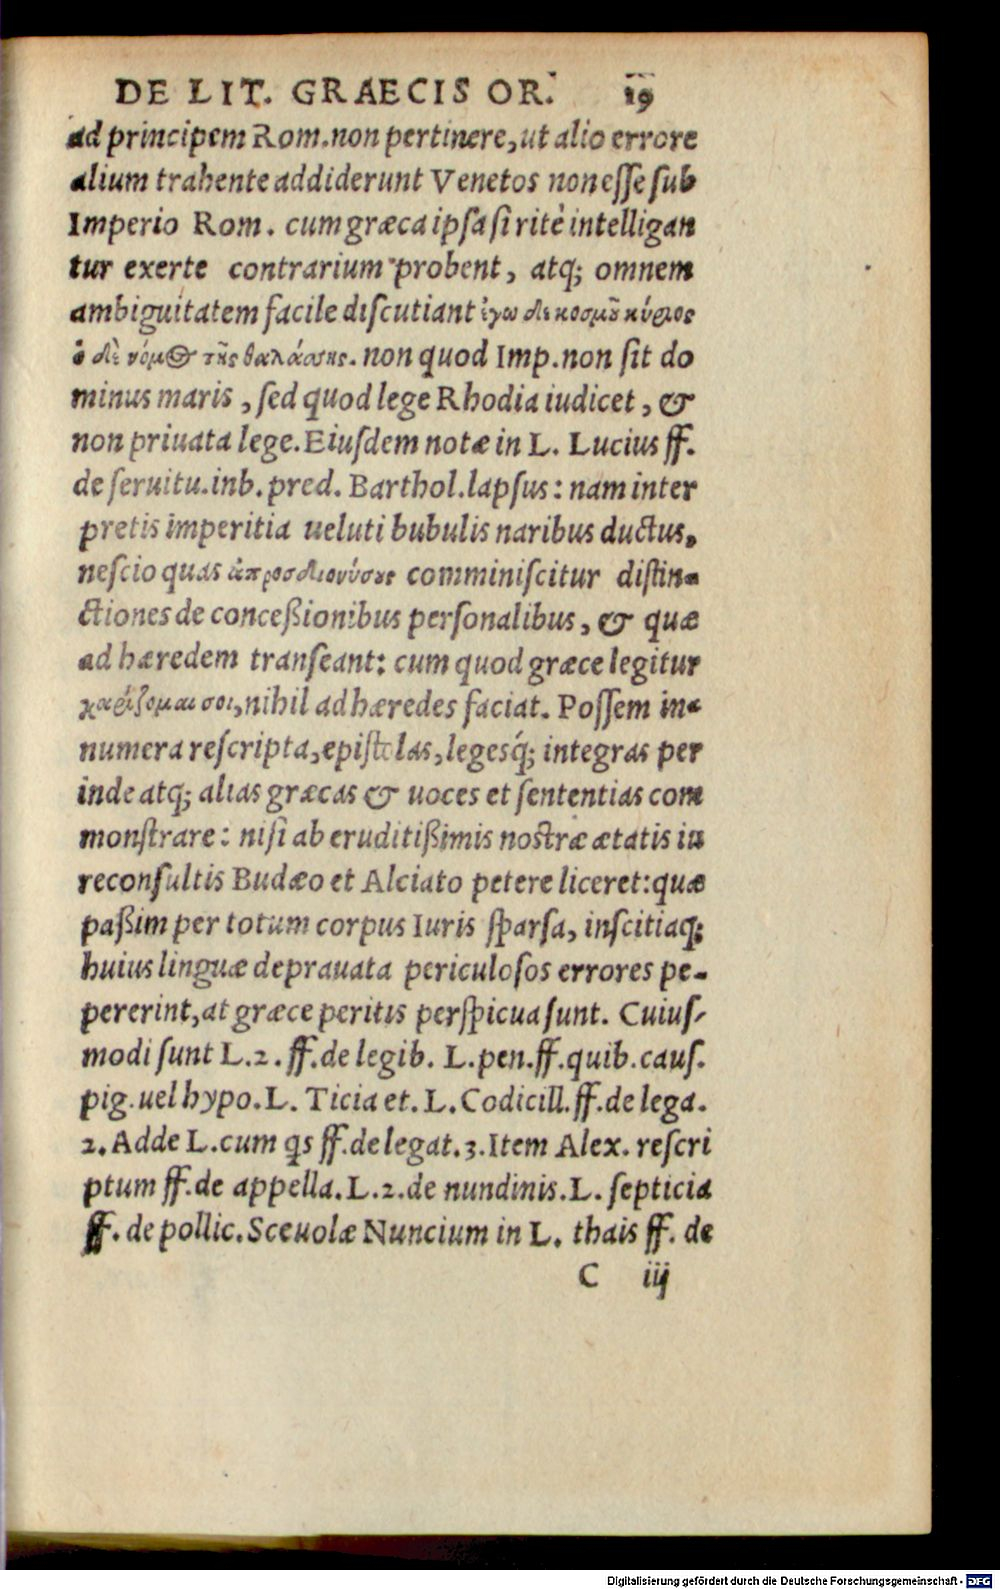 DE LIT. GRAECIS OR. 19
ad principem Rom. non pertinere, ut alio errore
alium trahente addiderunt Venetos non esse sub
Imperio Rom. cum græca ipsa si ritè intelligan
tur exerte contrarium probent, atq; omnem
ambiguitatem facile discutiant ἐγω δὲ κοσμοῦ κύριος
ὁ δὲ νόμος τῆς θαλάσσης. non quod Imp. non sit do
minus maris, sed quod lege Rhodia iudicet, &
non priuata lege. Eiusdem notæ in L. Lucius ff.
de seruitu. inb. pred. Barthol. lapsus: nam inter
pretis imperitia ueluti bubulis naribus ductus,
nescio quas ἀπροσδιονύσους comminiscitur distin-
ctiones de conceßionibus personalibus, & quæ
ad hæredem transeant: cum quod græce legitur
χαρίζομαι σοι, nihil ad hæredes faciat. Possem in-
numera rescripta, epistolas, legesq́; integras per
inde atq; alias græcas & uoces et sententias com
monstrare: nisi ab eruditißimis nostræ ætatis iu
reconsultis Budæo et Alciato petere liceret: quæ
paßim per totum corpus Iuris sparsa, inscitiaq;
huius linguæ deprauata periculosos errores pe-
pererint, at græce peritis perspicua sunt. Cuius-
modi sunt L. 2. ff. de legib. L. pen. ff. quib. caus.
pig. uel hypo. L. Ticia et. L. Codicill. ff. de lega.
2. Adde L. cum qs ff. de legat. 3. Item Alex. rescri
ptum ff. de appella. L. 2. de nundinis. L. septicia
ff. de pollic. Sceuolæ Nuncium in L. thais ff. de
C iij
Digitalisierung gefördert durch die Deutsche Forschungsgemeinschaft - DFG